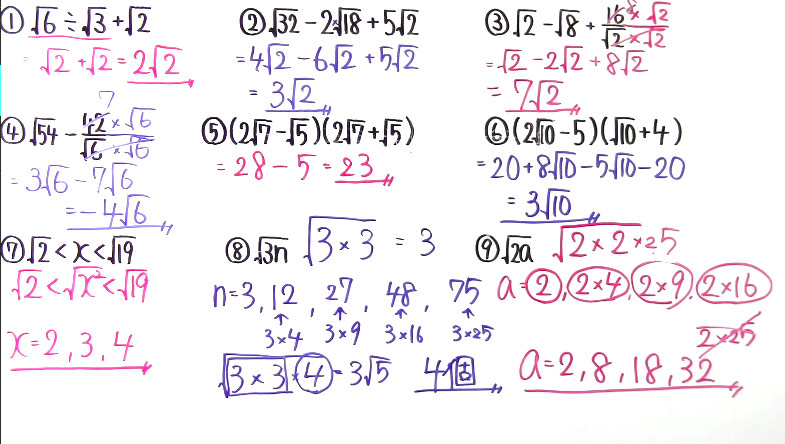 ① √6 ÷ √3 + √2
= √2 + √2 = 2√2
② √32 − 2√18 + 5√2
= 4√2 − 6√2 + 5√2
= 3√2
③ √2 − √8 + 16 × √2 / √2 × √2
8
= √2 − 2√2 + 8√2
= 7√2
④ √54 − 42 × √6 / √6 × √6
7
= 3√6 − 7√6
= −4√6
⑤ (2√7 − √5)(2√7 + √5)
= 28 − 5 = 23
⑥ (2√10 − 5)(√10 + 4)
= 20 + 8√10 − 5√10 − 20
= 3√10
⑦ √2 < x < √19
√2 < √x² < √19
x = 2, 3, 4
⑧ √3n √3 × 3 = 3
n = 3, 12, 27, 48, 75
↑ ↑ ↑ ↑
3×4 3×9 3×16 3×25
√3 × 3 × 4 = 3√5 4個
⑨ √2a √2 × 2 × 25
a = 2, 2×4, 2×9, 2×16
2×25
a = 2, 8, 18, 32